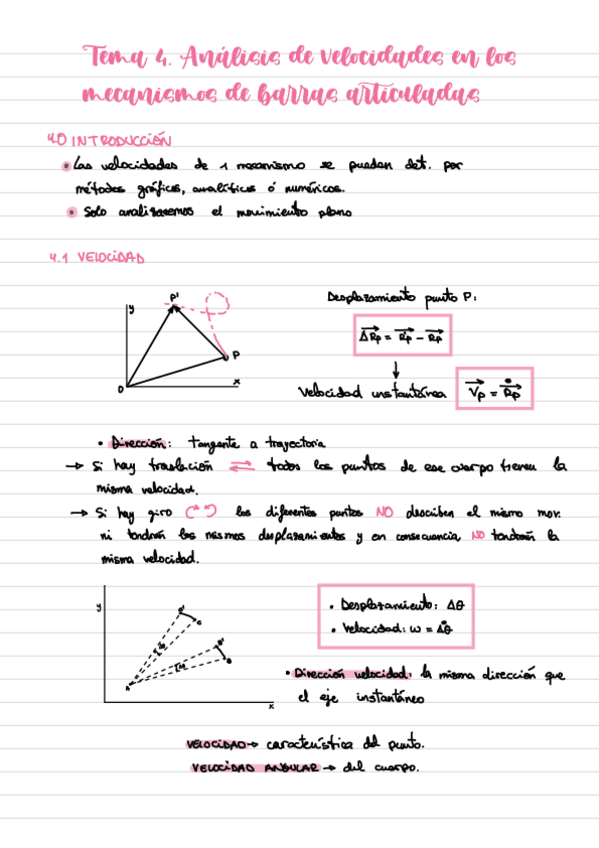 Tema 4. Análisis de velocidades en los
mecanismos de barras articuladas
4.0 INTRODUCCIÓN
• Las velocidades de 1 mecanismo se pueden det. por
métodos gráficos, analíticos ó numéricos.
• Solo analizaremos el movimiento plano
4.1 VELOCIDAD
y
P'
P
O
x
Desplazamiento punto P:
ΔRp = Rp' - Rp
↓
Velocidad instantánea Vp = Ṙp
• Dirección: tangente a trayectoria
→ Si hay traslación ⇌ todos los puntos de ese cuerpo tienen la
misma velocidad.
→ Si hay giro los diferentes puntos NO describen el mismo mov.
ni tendrán los mismos desplazamientos y en consecuencia, NO tendrán la
misma velocidad.
y
C'
C
B'
B
A
x
• Desplazamiento: Δθ
• Velocidad: ω = Δθ̇
• Dirección velocidad: la misma dirección que
el eje instantáneo
VELOCIDAD → característica del punto.
VELOCIDAD ANGULAR → del cuerpo.